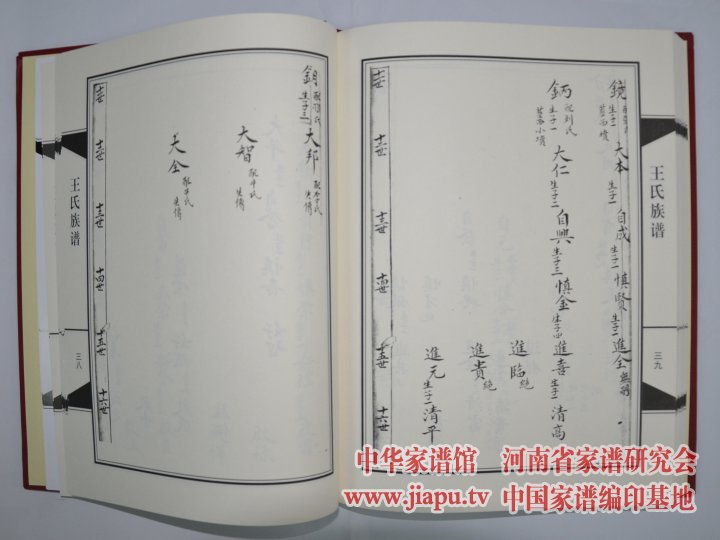 王氏族谱
三九
鏡
生子一
大本
生子一
自成
生子一
慎賢
生子一
進全
鈵
配刘氏
生子一
大仁
生子二
自興
生子三
慎金
生子四
進喜
生子一
清高
進臨
絶
進貴
絶
進元
生子一
清平
十二世
十三世
十四世
十五世
十六世
生子三
大邦
失傳
大智
失傳
大全
失傳
十二世
十三世
十四世
十五世
十六世
王氏族谱
三八
中华家谱馆 河南省家谱研究会
www.jiapu.tv 中国家谱编印基地